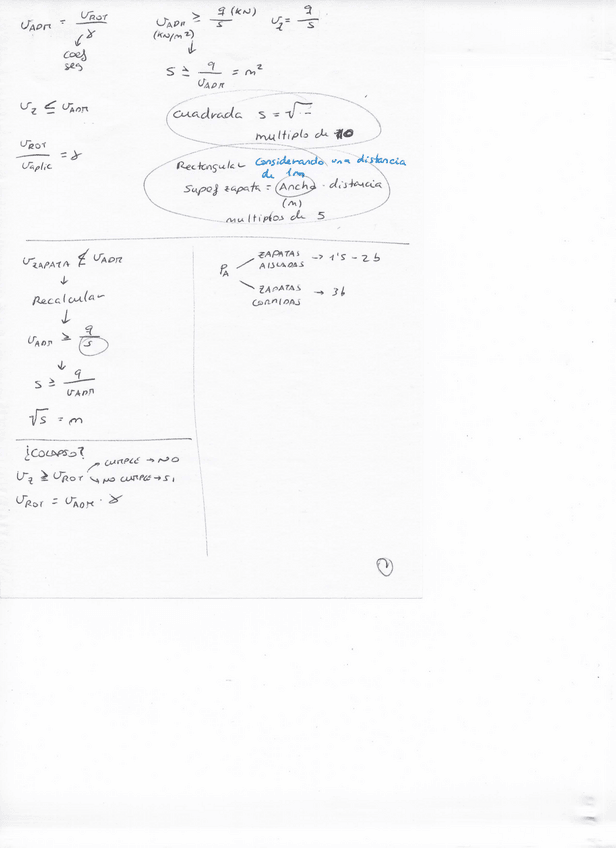 σADM = σROT / γ
coef
seg
σADM ≥ q (KN) / S
(KN/m²)
σz = q / S
S ≥ q / σADM = m²
σz ≤ σADM
σROT / σaplic = γ
Cuadrada S = √
multiplo de 10
Rectangular Considerando una distancia
de 1m
Supef zapata = Ancho · distancia
(m)
multiplos de 5
σZAPATA ≰ σADM
↓
Recalcular
↓
σADM ≥ q / S
↓
S ≥ q / σADM
√S = m
PA
ZAPATAS
AISLADAS → 1'5 - 2 b
ZAPATAS
CORRIDAS → 3b
¿COLAPSO?
σz ≥ σROT
CUMPLE → NO
NO CUMPLE → SI
σROT = σADM · γ
1